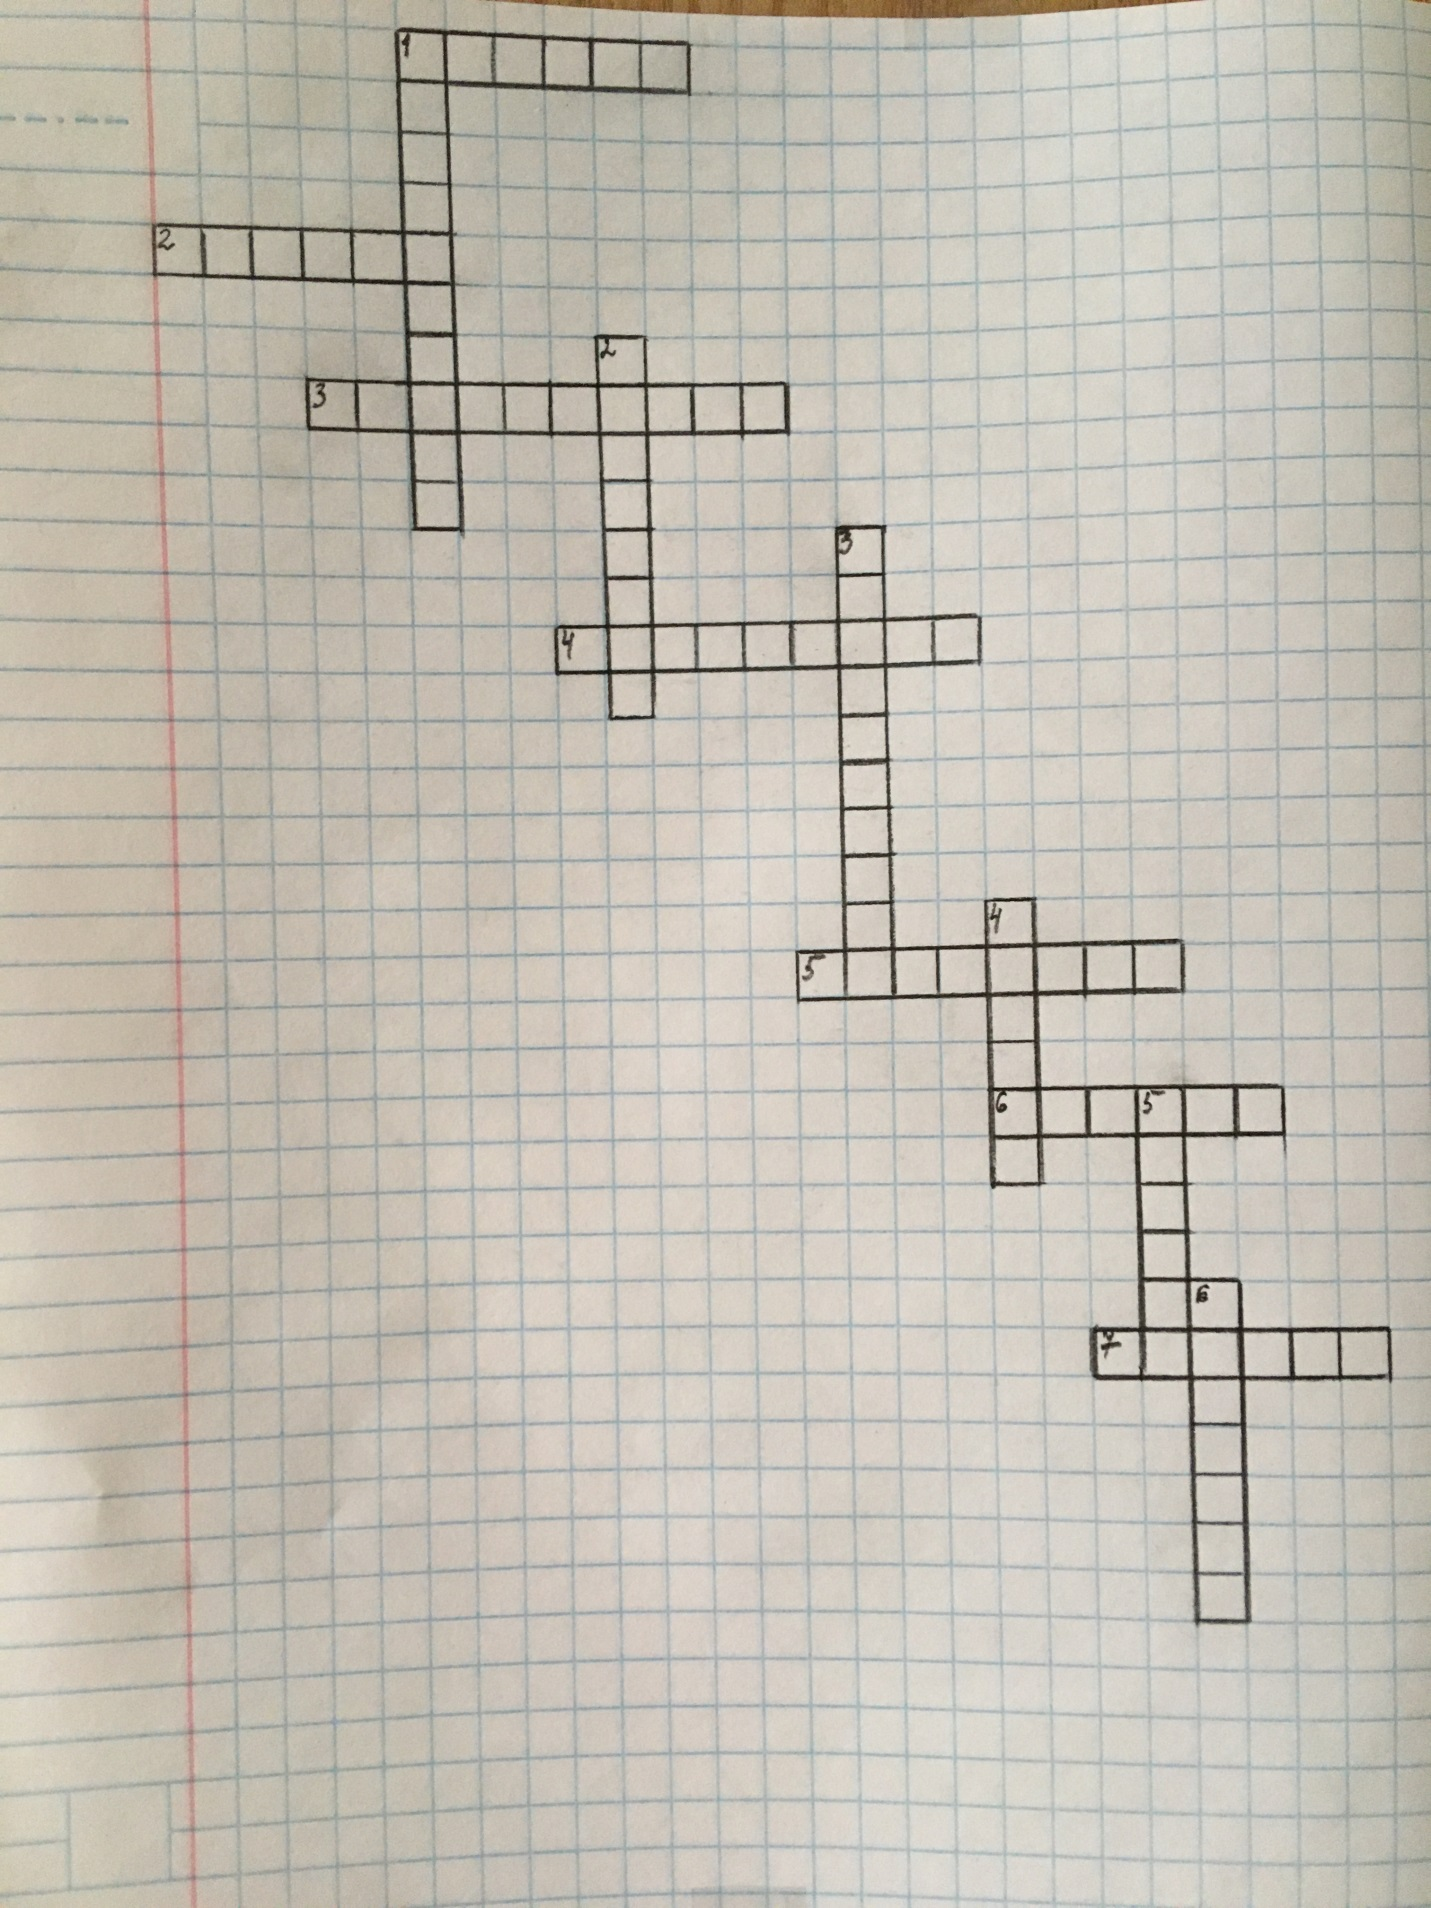 1
2
2
3
3
4
4
5
6 5
6
7